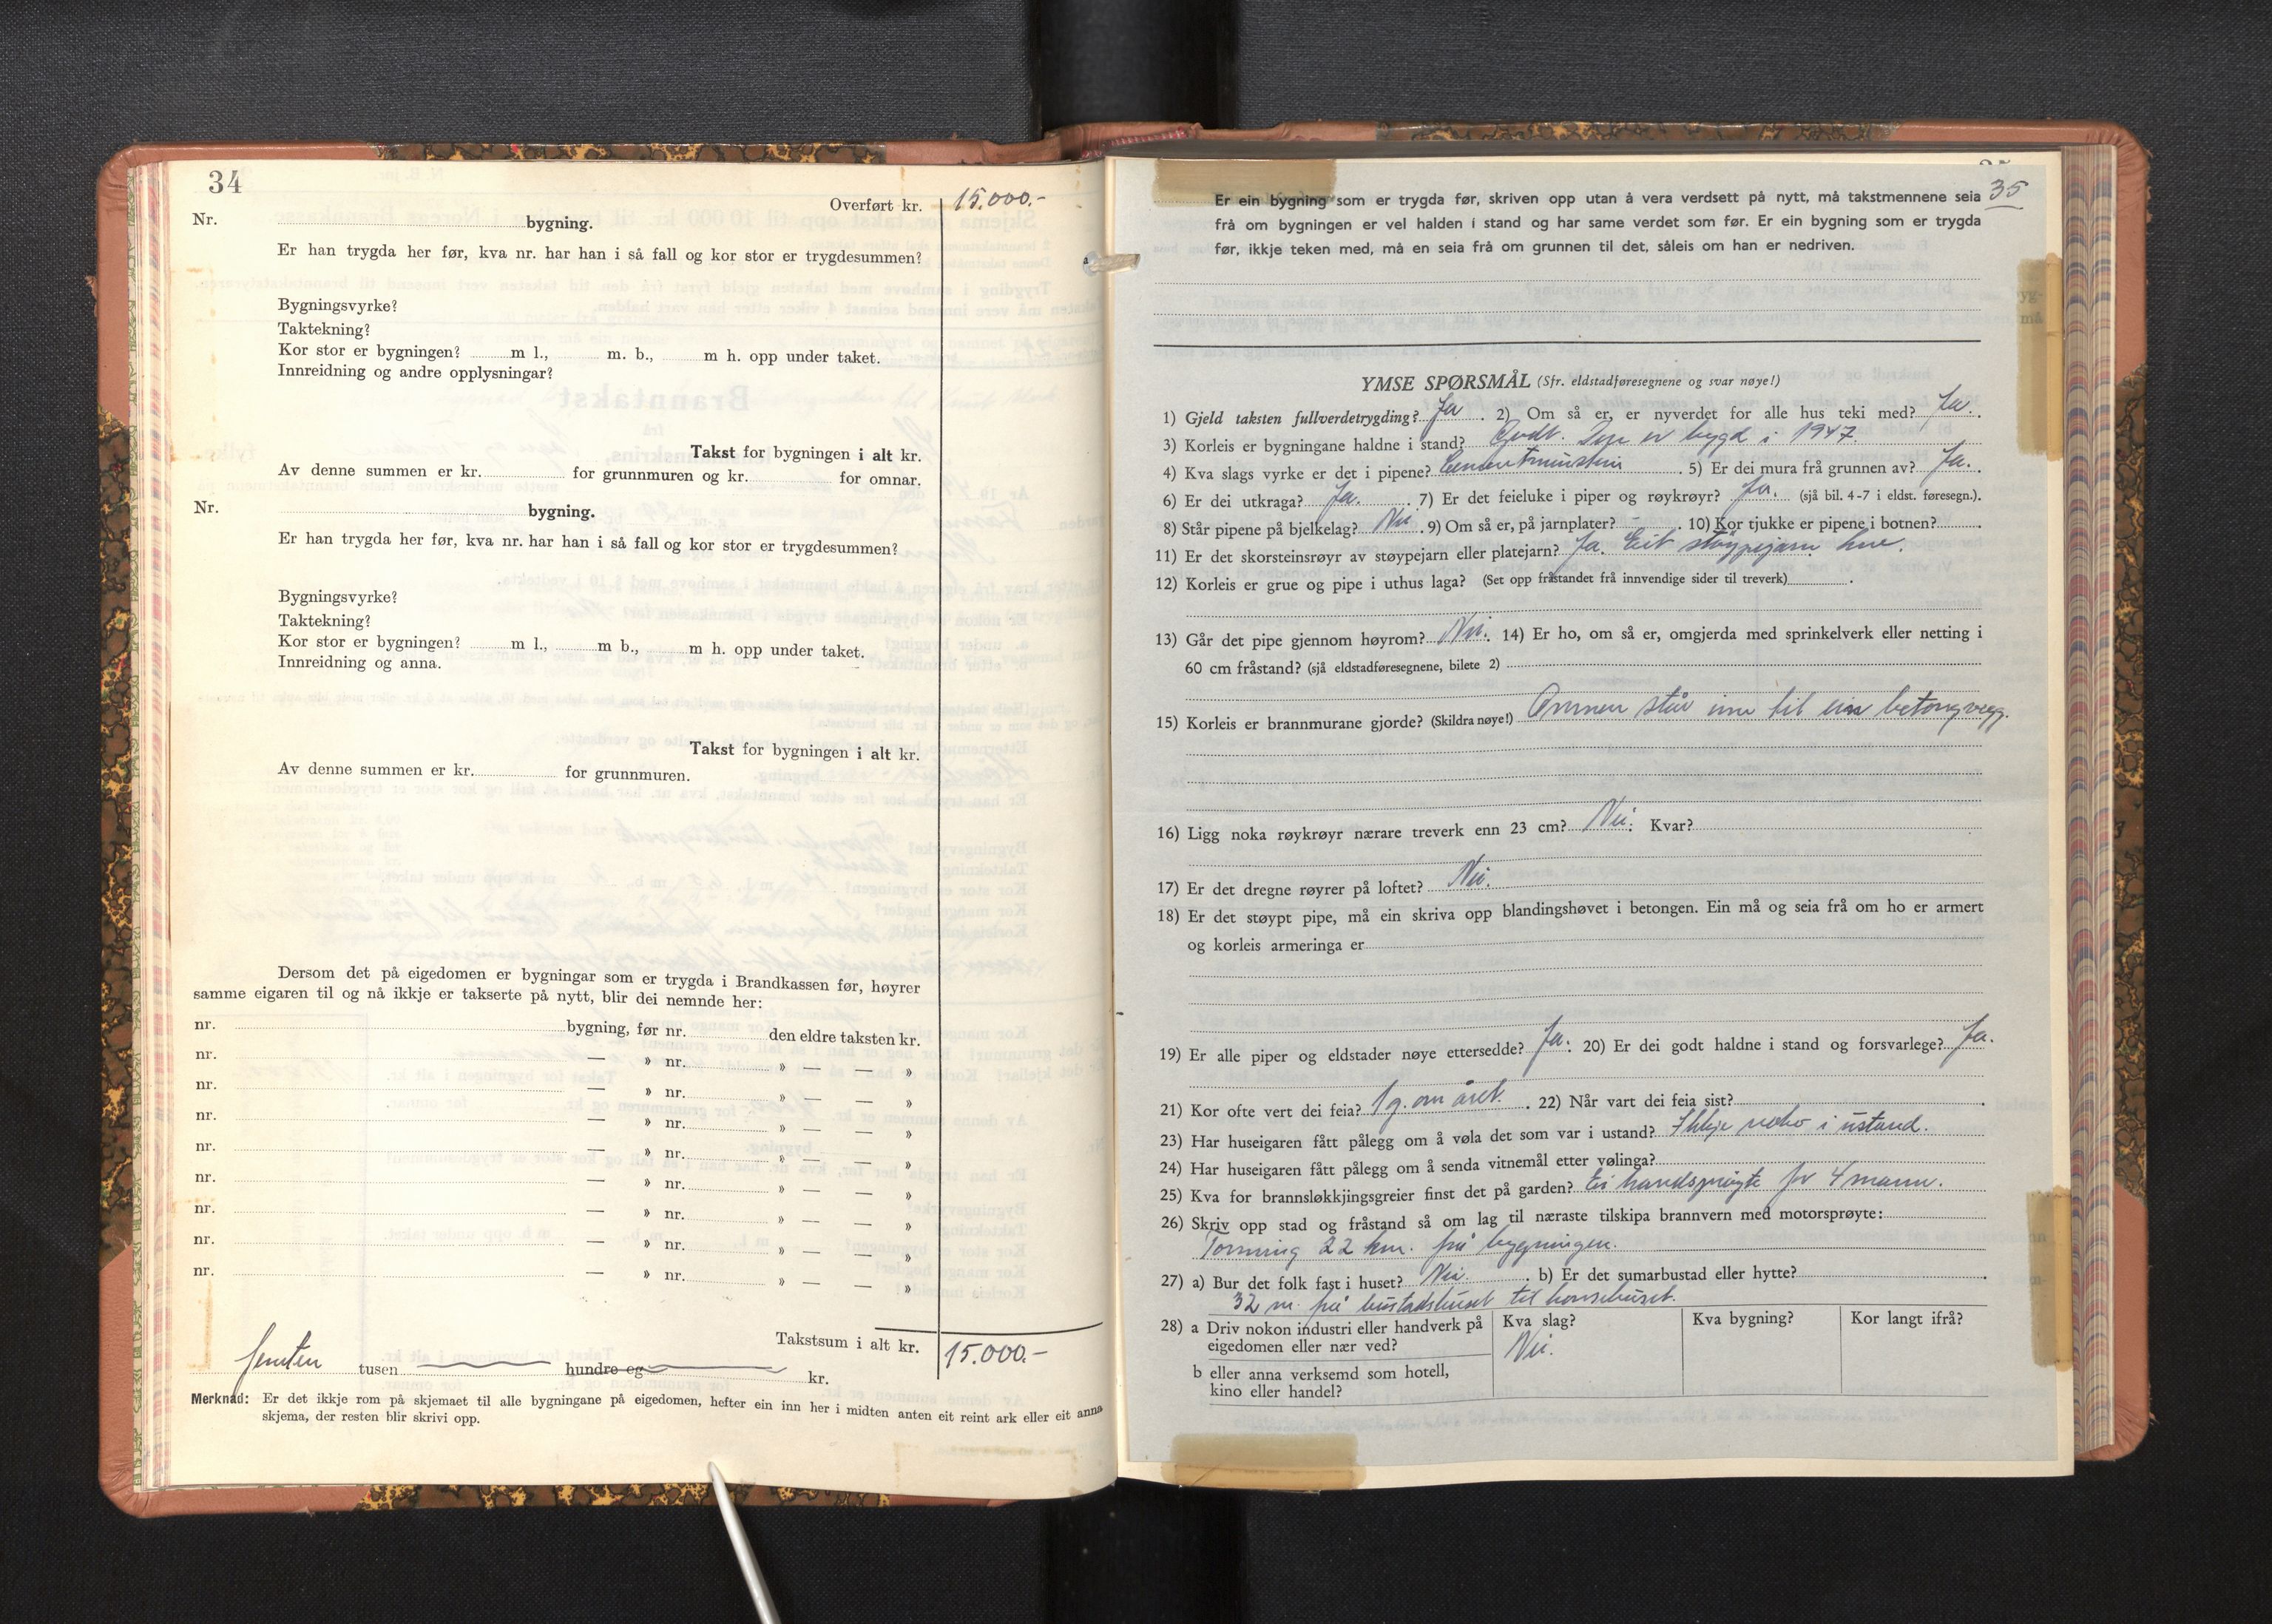 34
Overført kr. 15.000.-
Nr. bygning.
Er han trygda her før, kva nr. har han i så fall og kor stor er trygdesummen?
Bygningsvyrke?
Taktekning?
Kor stor er bygningen? m l., m. b., m h. opp under taket.
Innreidning og andre opplysningar?
Takst for bygningen i alt kr.
Av denne summen er kr. for grunnmuren og kr. for omnar.
Nr. bygning.
Er han trygda her før, kva nr. har han i så fall og kor stor er trygdesummen?
Bygningsvyrke?
Taktekning?
Kor stor er bygningen? m l., m b., m h. opp under taket.
Innreidning og anna.
Takst for bygningen i alt kr.
Av denne summen er kr. for grunnmuren.
Dersom det på eigedomen er bygningar som er trygda i Brandkassen før, høyrer
samme eigaren til og nå ikkje er takserte på nytt, blir dei nemnde her:
nr. bygning, før nr. den eldre taksten kr.
nr. — » nr. » — — »
nr. — » nr. » — — »
nr. — » nr. » — — »
nr. — » nr. » — — »
nr. — » nr. » — — »
nr. — » nr. » — — »
nr. — » nr. » — — »
nr. — » nr. » — — »
Takstsum i alt kr. 15.000.-
femten tusen hundre og kr.
Merknad: Er det ikkje rom på skjemaet til alle bygningane på eigedomen, hefter ein inn her i midten anten eit reint ark eller eit anna
skjema, der resten blir skrivi opp.
35
Er ein bygning som er trygda før, skriven opp utan å vera verdsett på nytt, må takstmennene seia
frå om bygningen er vel halden i stand og har same verdet som før. Er ein bygning som er trygda
før, ikkje teken med, må en seia frå om grunnen til det, såleis om han er nedriven.
YMSE SPØRSMÅL (Sfr. eldstadføresegnene og svar nøye!)
1) Gjeld taksten fullverdetrygding? Ja. 2) Om så er, er nyverdet for alle hus teki med? Ja.
3) Korleis er bygningane haldne i stand? Godt. Den er bygd i 1947.
4) Kva slags vyrke er det i pipene? Cementmurstein. 5) Er dei mura frå grunnen av? Ja.
6) Er dei utkraga? Ja. 7) Er det feieluke i piper og røykrøyr? Ja. (sjå bil. 4-7 i eldst. føresegn.).
8) Står pipene på bjelkelag? Nei. 9) Om så er, på jarnplater? - . 10) Kor tjukke er pipene i botnen?
11) Er det skorsteinsrøyr av støypejarn eller platejarn? Ja. Eit støypejarn
12) Korleis er grue og pipe i uthus laga? (Set opp fråstandet frå innvendige sider til treverk)
13) Går det pipe gjennom høyrom? Nei. 14) Er ho, om så er, omgjerda med sprinkelverk eller netting i
60 cm fråstand? (sjå eldstadføresegnene, bilete 2)
15) Korleis er brannmurane gjorde? (Skildra nøye!) Omnen står inn til ein betongvegg.
16) Ligg noka røykrøyr nærare treverk enn 23 cm? Nei. Kvar?
17) Er det dregne røyrer på loftet? Nei.
18) Er det støypt pipe, må ein skriva opp blandingshøvet i betongen. Ein må og seia frå om ho er armert
og korleis armeringa er
19) Er alle piper og eldstader nøye ettersedde? Ja. 20) Er dei godt haldne i stand og forsvarlege? Ja.
21) Kor ofte vert dei feia? 1 g. om året. 22) Når vart dei feia sist?
23) Har huseigaren fått pålegg om å vøla det som var i ustand? Ikkje noko i ustand.
24) Har huseigaren fått pålegg om å senda vitnemål etter vølinga?
25) Kva for brannsløkkjingsgreier finst det på garden? Ei handsprøyte for 4 mann.
26) Skriv opp stad og fråstand så om lag til næraste tilskipa brannvern med motorsprøyte:
22 km. frå bygningen.
27) a) Bur det folk fast i huset? Nei. b) Er det sumarbustad eller hytte?
32 m. frå bustadshuset til hønsehuset.
28) a Driv nokon industri eller handverk på
eigedomen eller nær ved?
Kva slag? Kva bygning? Kor langt ifrå?
Nei.
b eller anna verksemd som hotell,
kino eller handel?